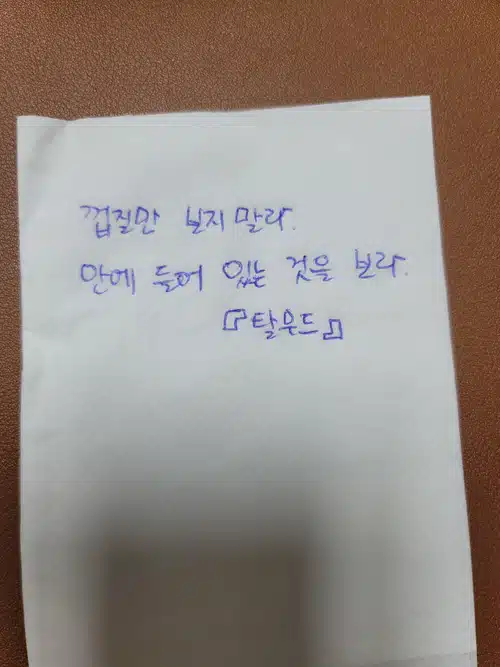 껍질만 보지말라.
안에 들어 있는 것을 보라.
『탈우드』